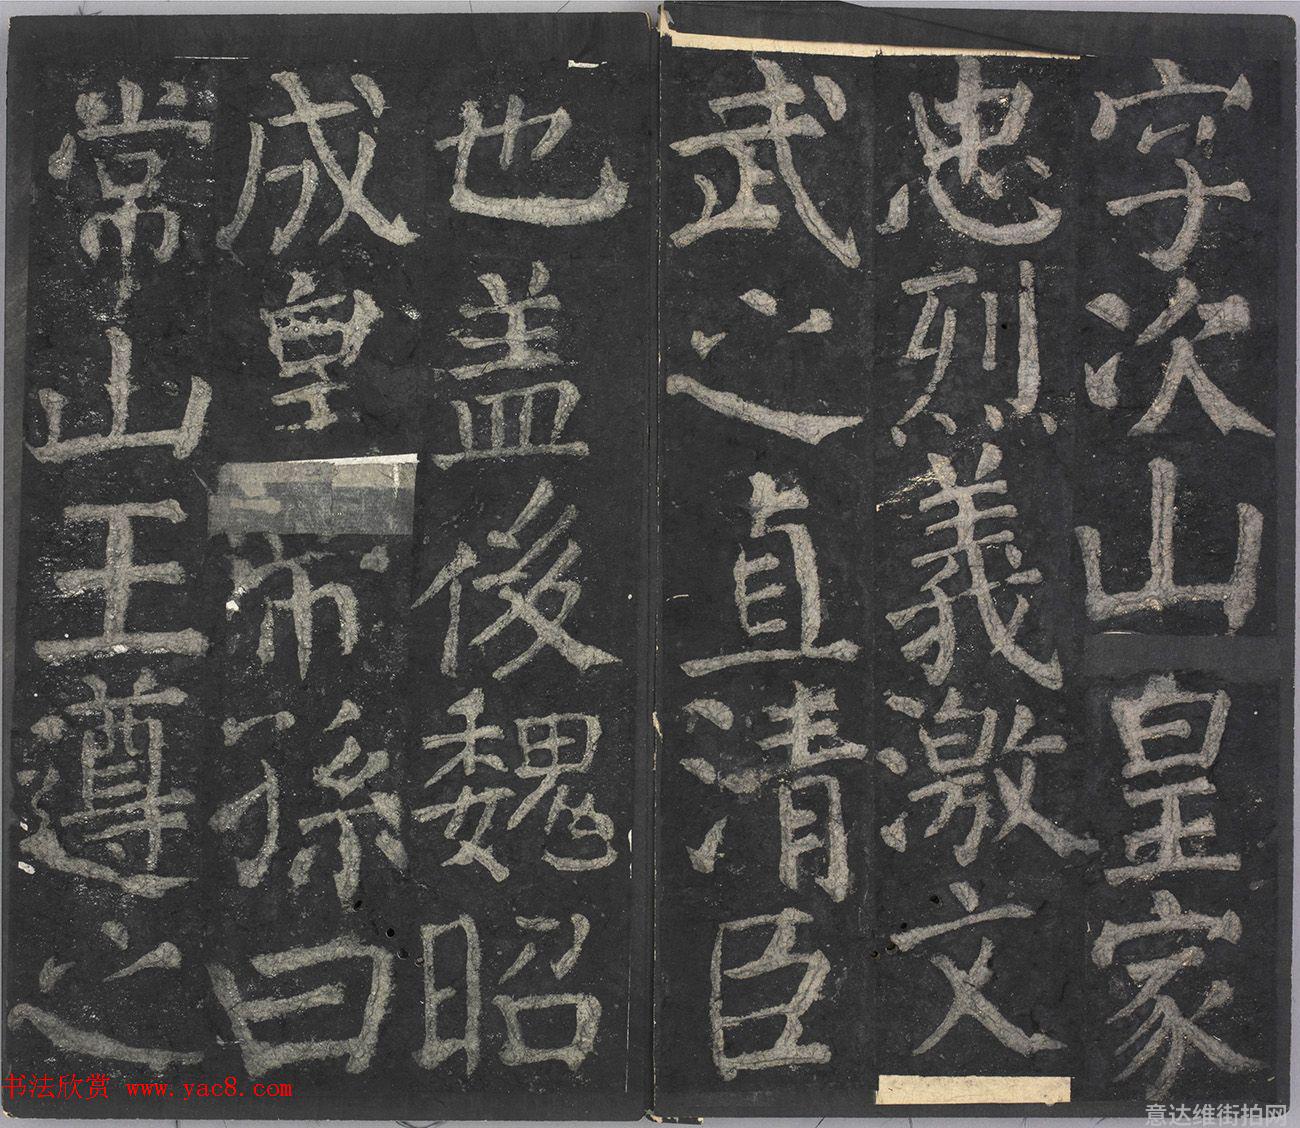 字次山皇家
忠烈義激文
武之直清臣
也盖後魏昭
成皇帝孫曰
常山王遵之
书法欣赏 www.yac8.com
意达维街拍网